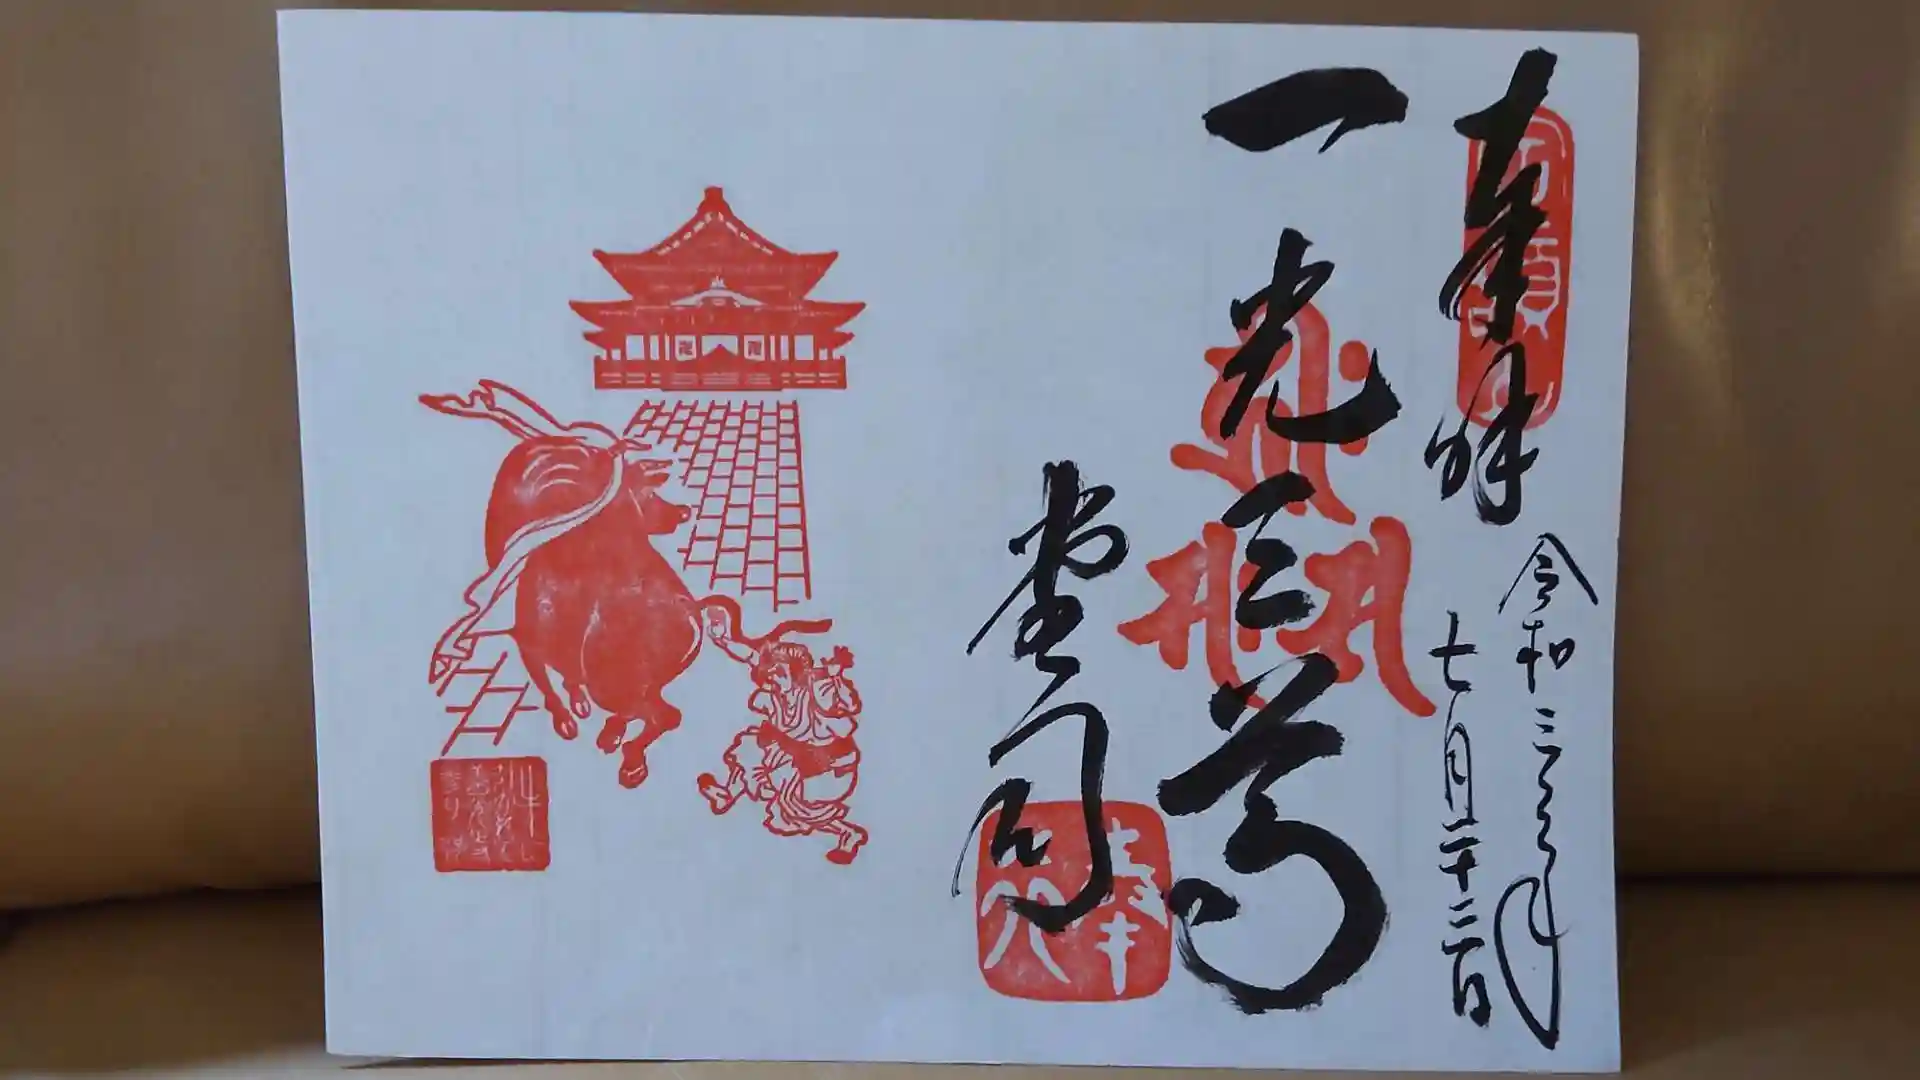 奉拝
令和三年
七月二十二日
一光三尊
堂司
牛に
ひかれて
善光寺
まいり